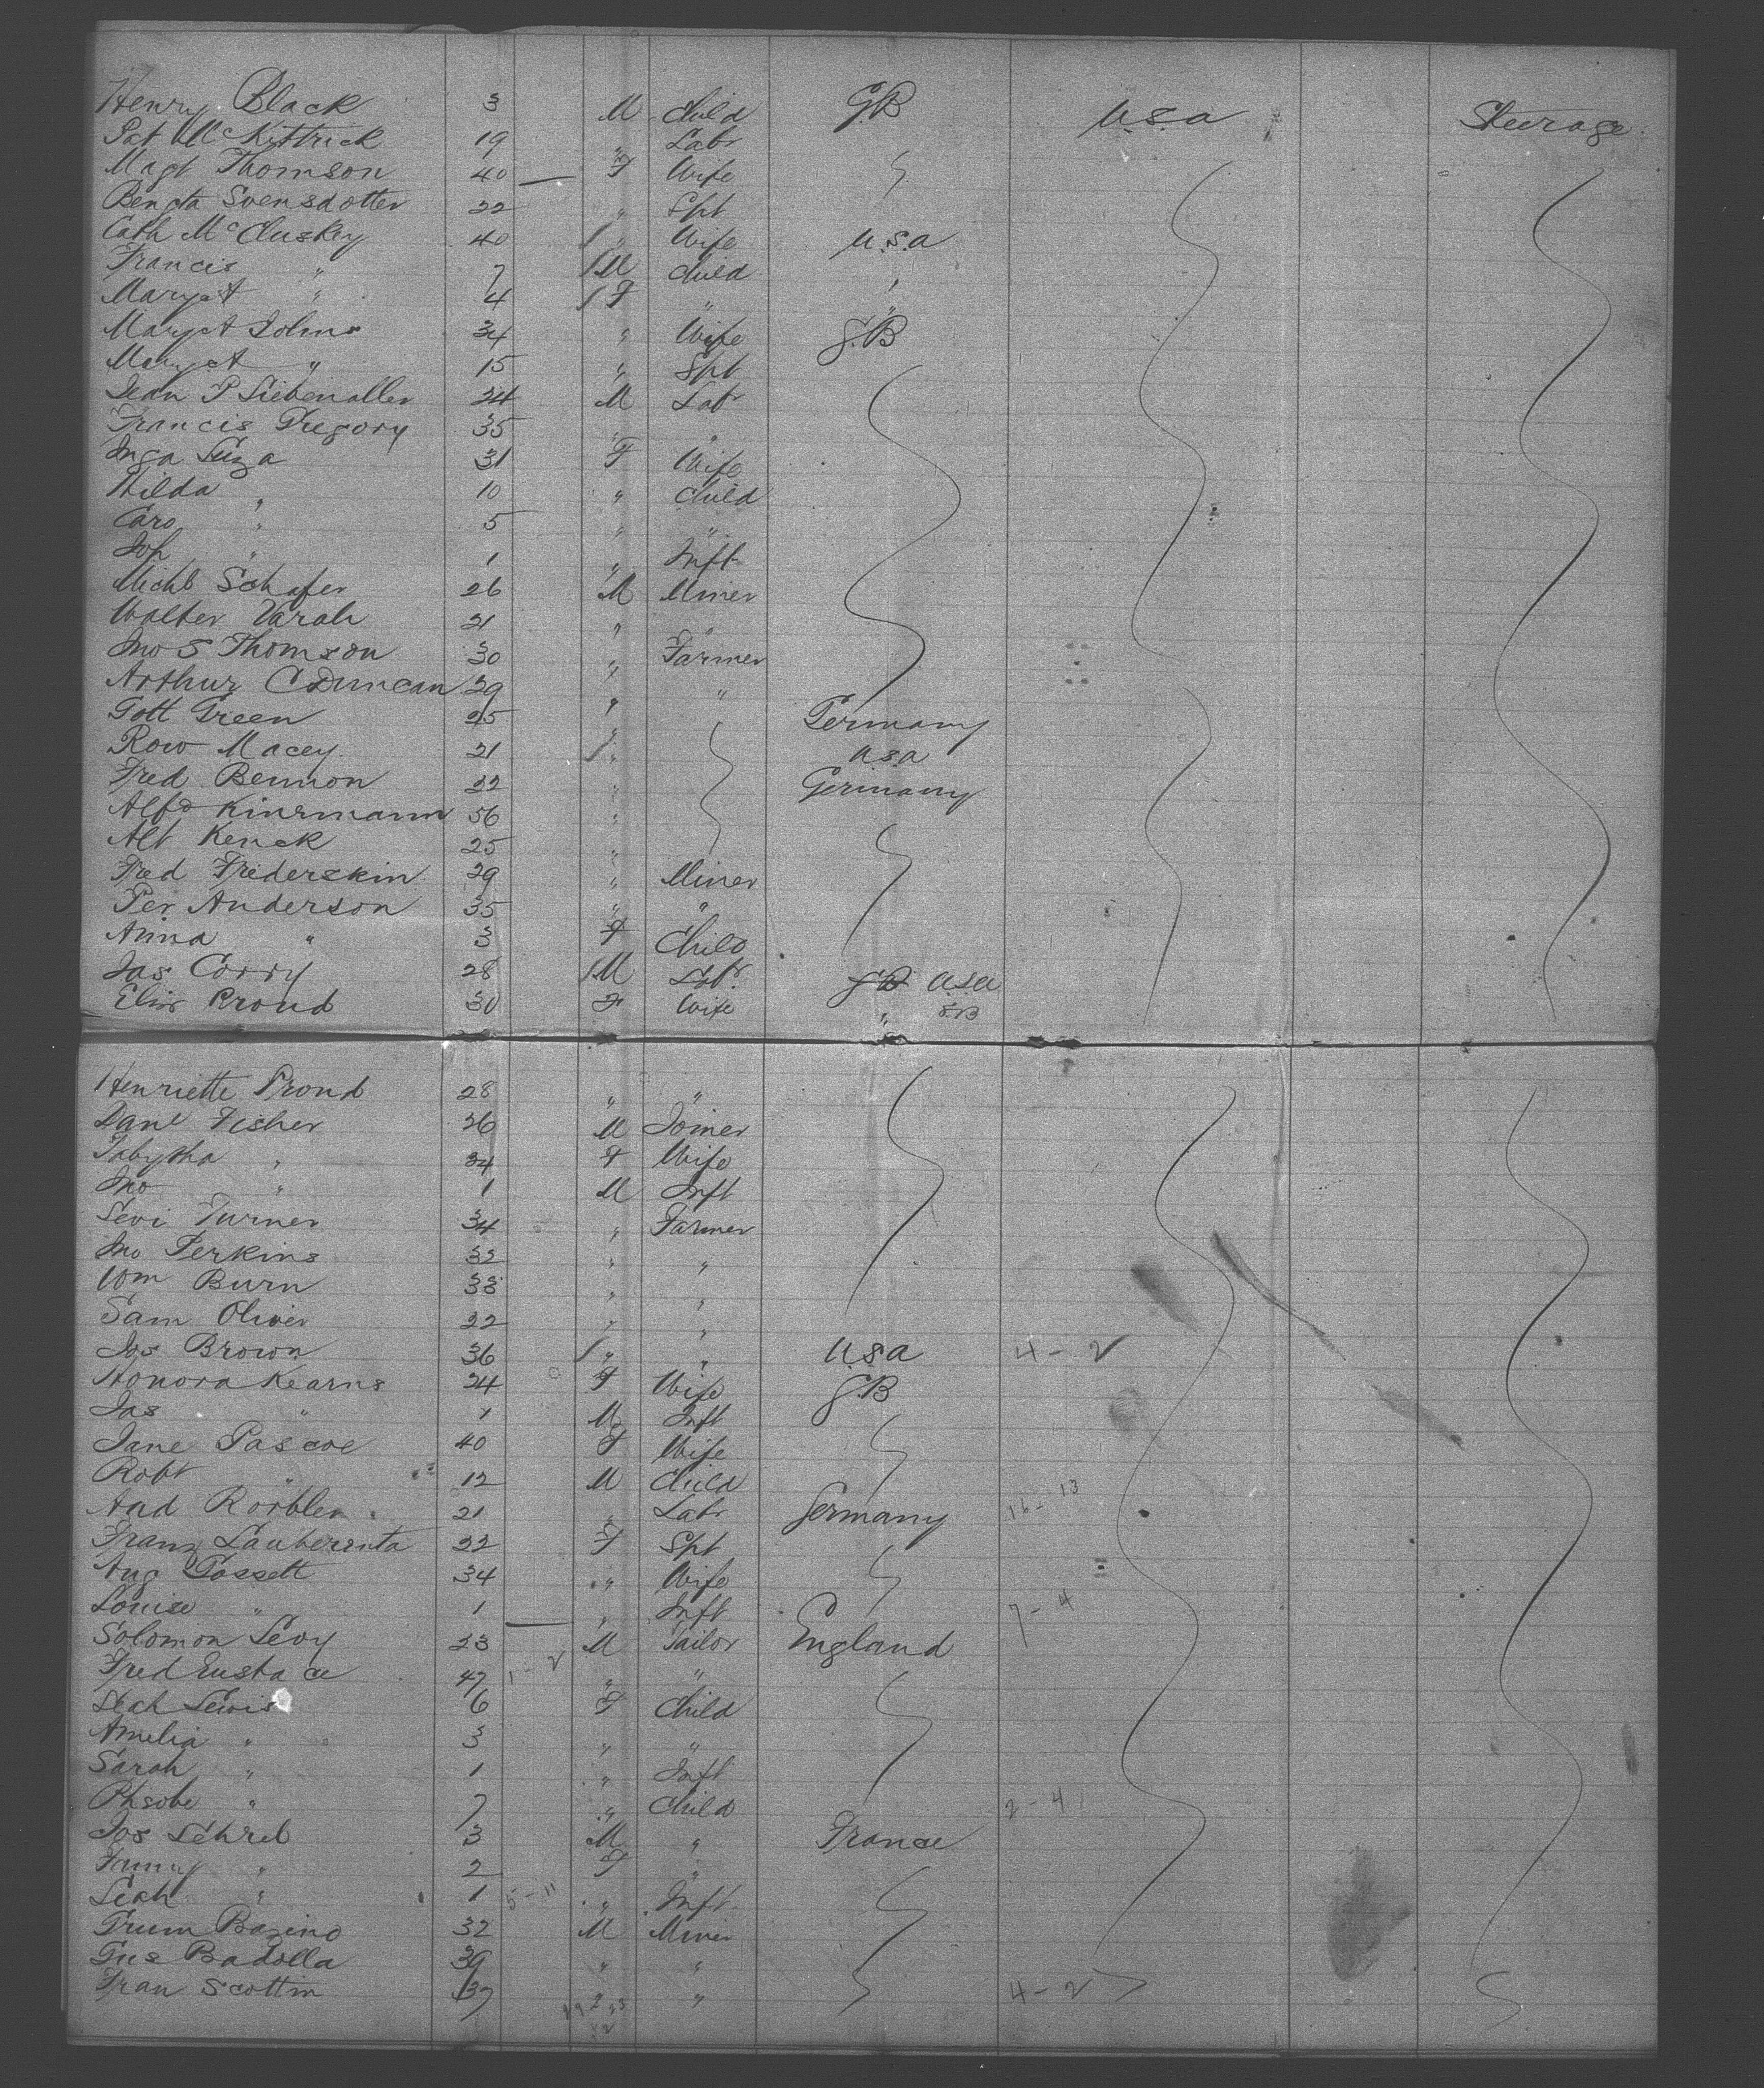 Henry Black 3 M Child G.B U.S.a Steerage
Pat McKittrick 19 " Labr
Magt Thomson 40 — F Wife
Bengta Svensdotter 22 " Spt
Cath McCluskey 40 / " Wife U.S.a
Francis " 7 / M Child "
Mary A " 4 / F " "
Mary A Johns 34 " Wife G.B
Mary A " 15 " Spt
Jean P Siebenaller 24 M Labr
Francis Gregory 35 " "
Inga 31 F Wife
Hilda " 10 " Child
Caro " 5 " "
" 1 " Inft
Michl Schafer 26 M Miner
Walter Varah 21 " "
Jno S Thomson 30 " Farmer
Arthur C Duncan 29 " "
Gott Green 25 " Germany
Row Macey 21 / " U.S.a
Fred Bennon 22 " Germany
Alfd Kinrmann 56 "
Alt Kenck 25 "
Fred Frederskin 29 " Miner
Per Anderson 35 " "
Anna " 3 F Child
Jas Corry 28 / M Labr G.B U.S.a
Eliz Proud 30 F Wife " G.B
Henriette Proud 28 " "
Danl Fisher 26 M Joiner
Tabytha " 34 F Wife
Jno " 1 M Inft
Levi Turner 34 " Farmer
Jno Perkins 32 " "
Wm Burn 33 " "
Sam Oliver 22 " "
Jos Brown 36 / " " U.S.a 4 - 2
Honora Kearns 24 F Wife G.B
Jas " 1 M Inft
Jane Pascoe 40 F Wife
Robt " 12 M Child
Aad Rorbler 21 " Labr Germany 16 - 13
Franz Lauberenta 22 F Spt
Aug Gassett 34 " Wife
Louise " 1 " Inft 7 - 4
Solomon Levy 23 — M Tailor England
Fred Eustace 47 1 - 2 " "
Leah Lewis 6 F Child
Amelia " 3 " "
Sarah " 1 " Inft
Phoebe " 7 " Child 2 - 4
Jos Schreb 3 M " France
Fanny " 2 F "
Leah " 1 5 - 11 " Inft
Grum Bazino 32 M Miner
Gus Badolla 39 " "
Fran Scottin 37 " " 4 - 2